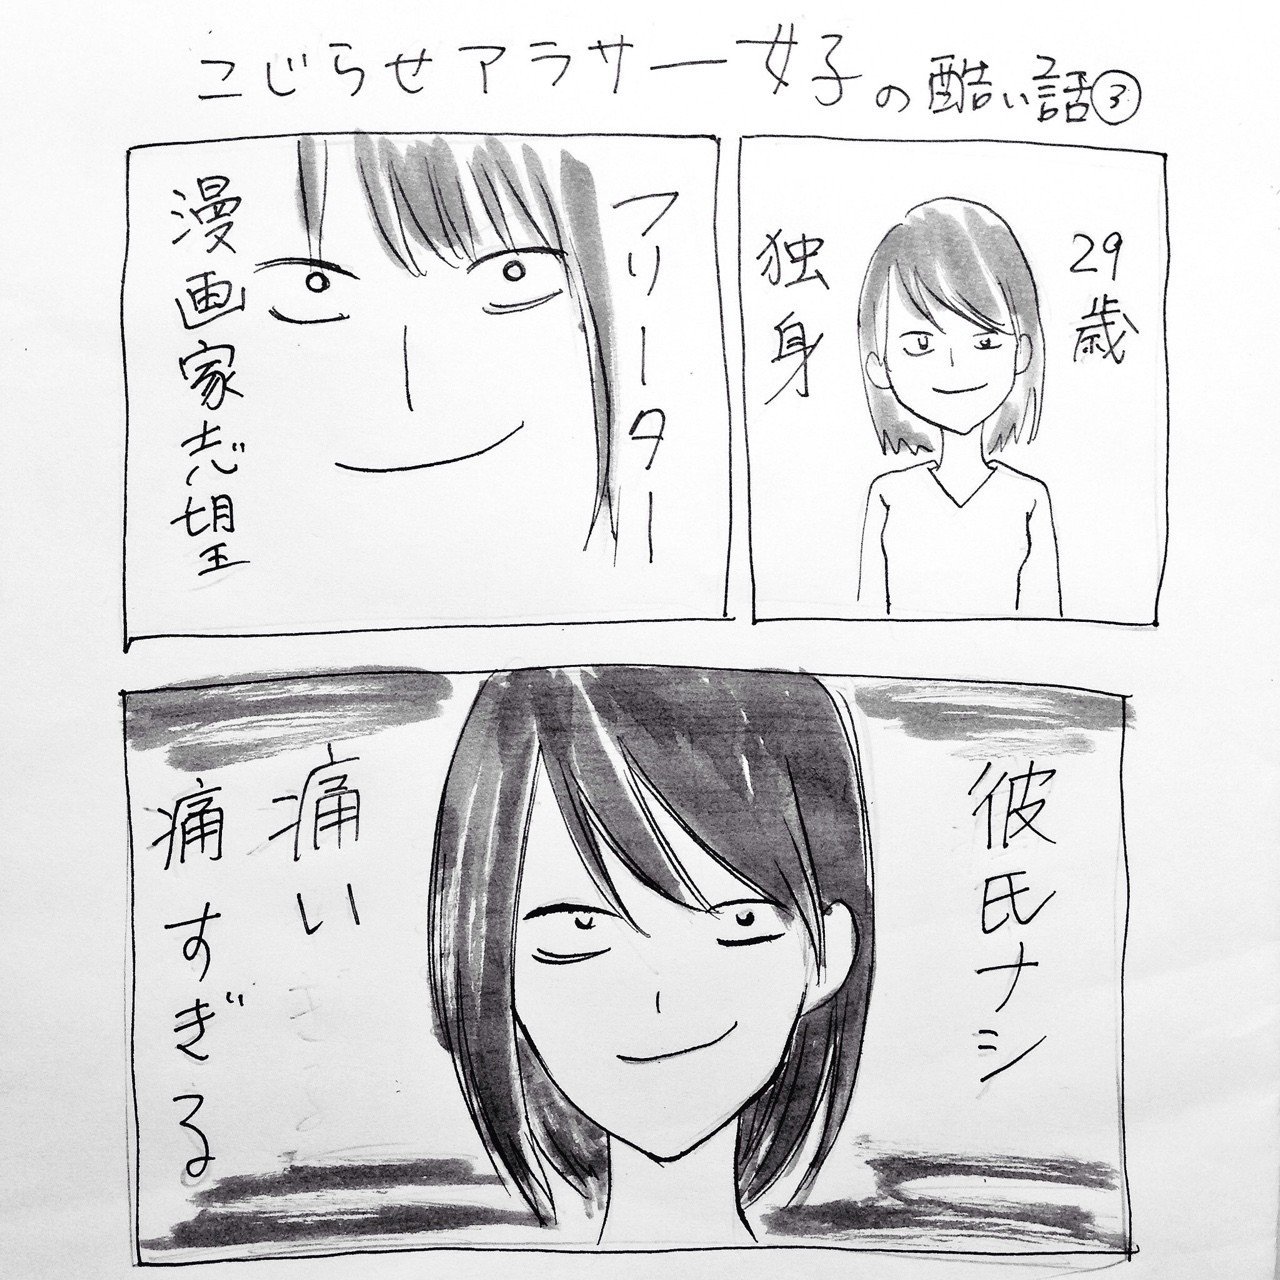 こじらせアラサー女子の酷い話③
29歳
独身
フリーター
漫画家志望
彼氏ナシ
痛い
痛すぎる